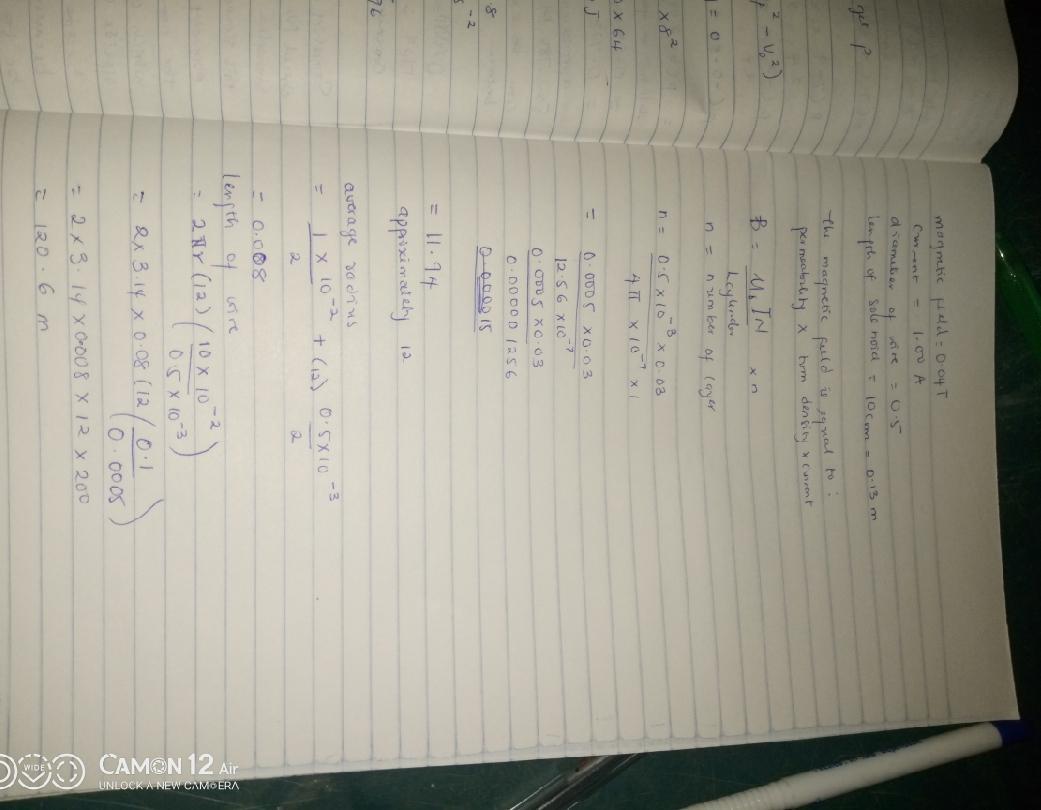 magnetic field = 0.04T
Current = 1.00 A
diameter of wire = 0.5
length of solenoid = 10cm = 0.13 m
the magnetic field is equal to :
permeability x turn density x current
B = μ₀IN x n
Lcylinder
n = number of layer
n = 0.5 x 10⁻³ x 0.03
4π x 10⁻⁷ x 1
= 0.0005 x 0.03
12.56 x 10⁻⁷
0.0005 x 0.03
0.000001256
0.000015
= 11.94
approximately 12
average radius
= 1 x 10⁻² + (12) 0.5x10⁻³
2 2
= 0.008
length of wire
= 2πr (12) (10 x 10⁻²)
0.5 x 10⁻³)
= 2x 3.14 x 0.08 (12 (0.1
0.0005)
= 2 x 3.14 x 0.008 x 12 x 200
= 120.6 m
ges P
² - V₀²)
= 0
x 8²
x 64
J
8
⁻²
96
WIDE
CAMON 12 Air
UNLOCK A NEW CAMERA